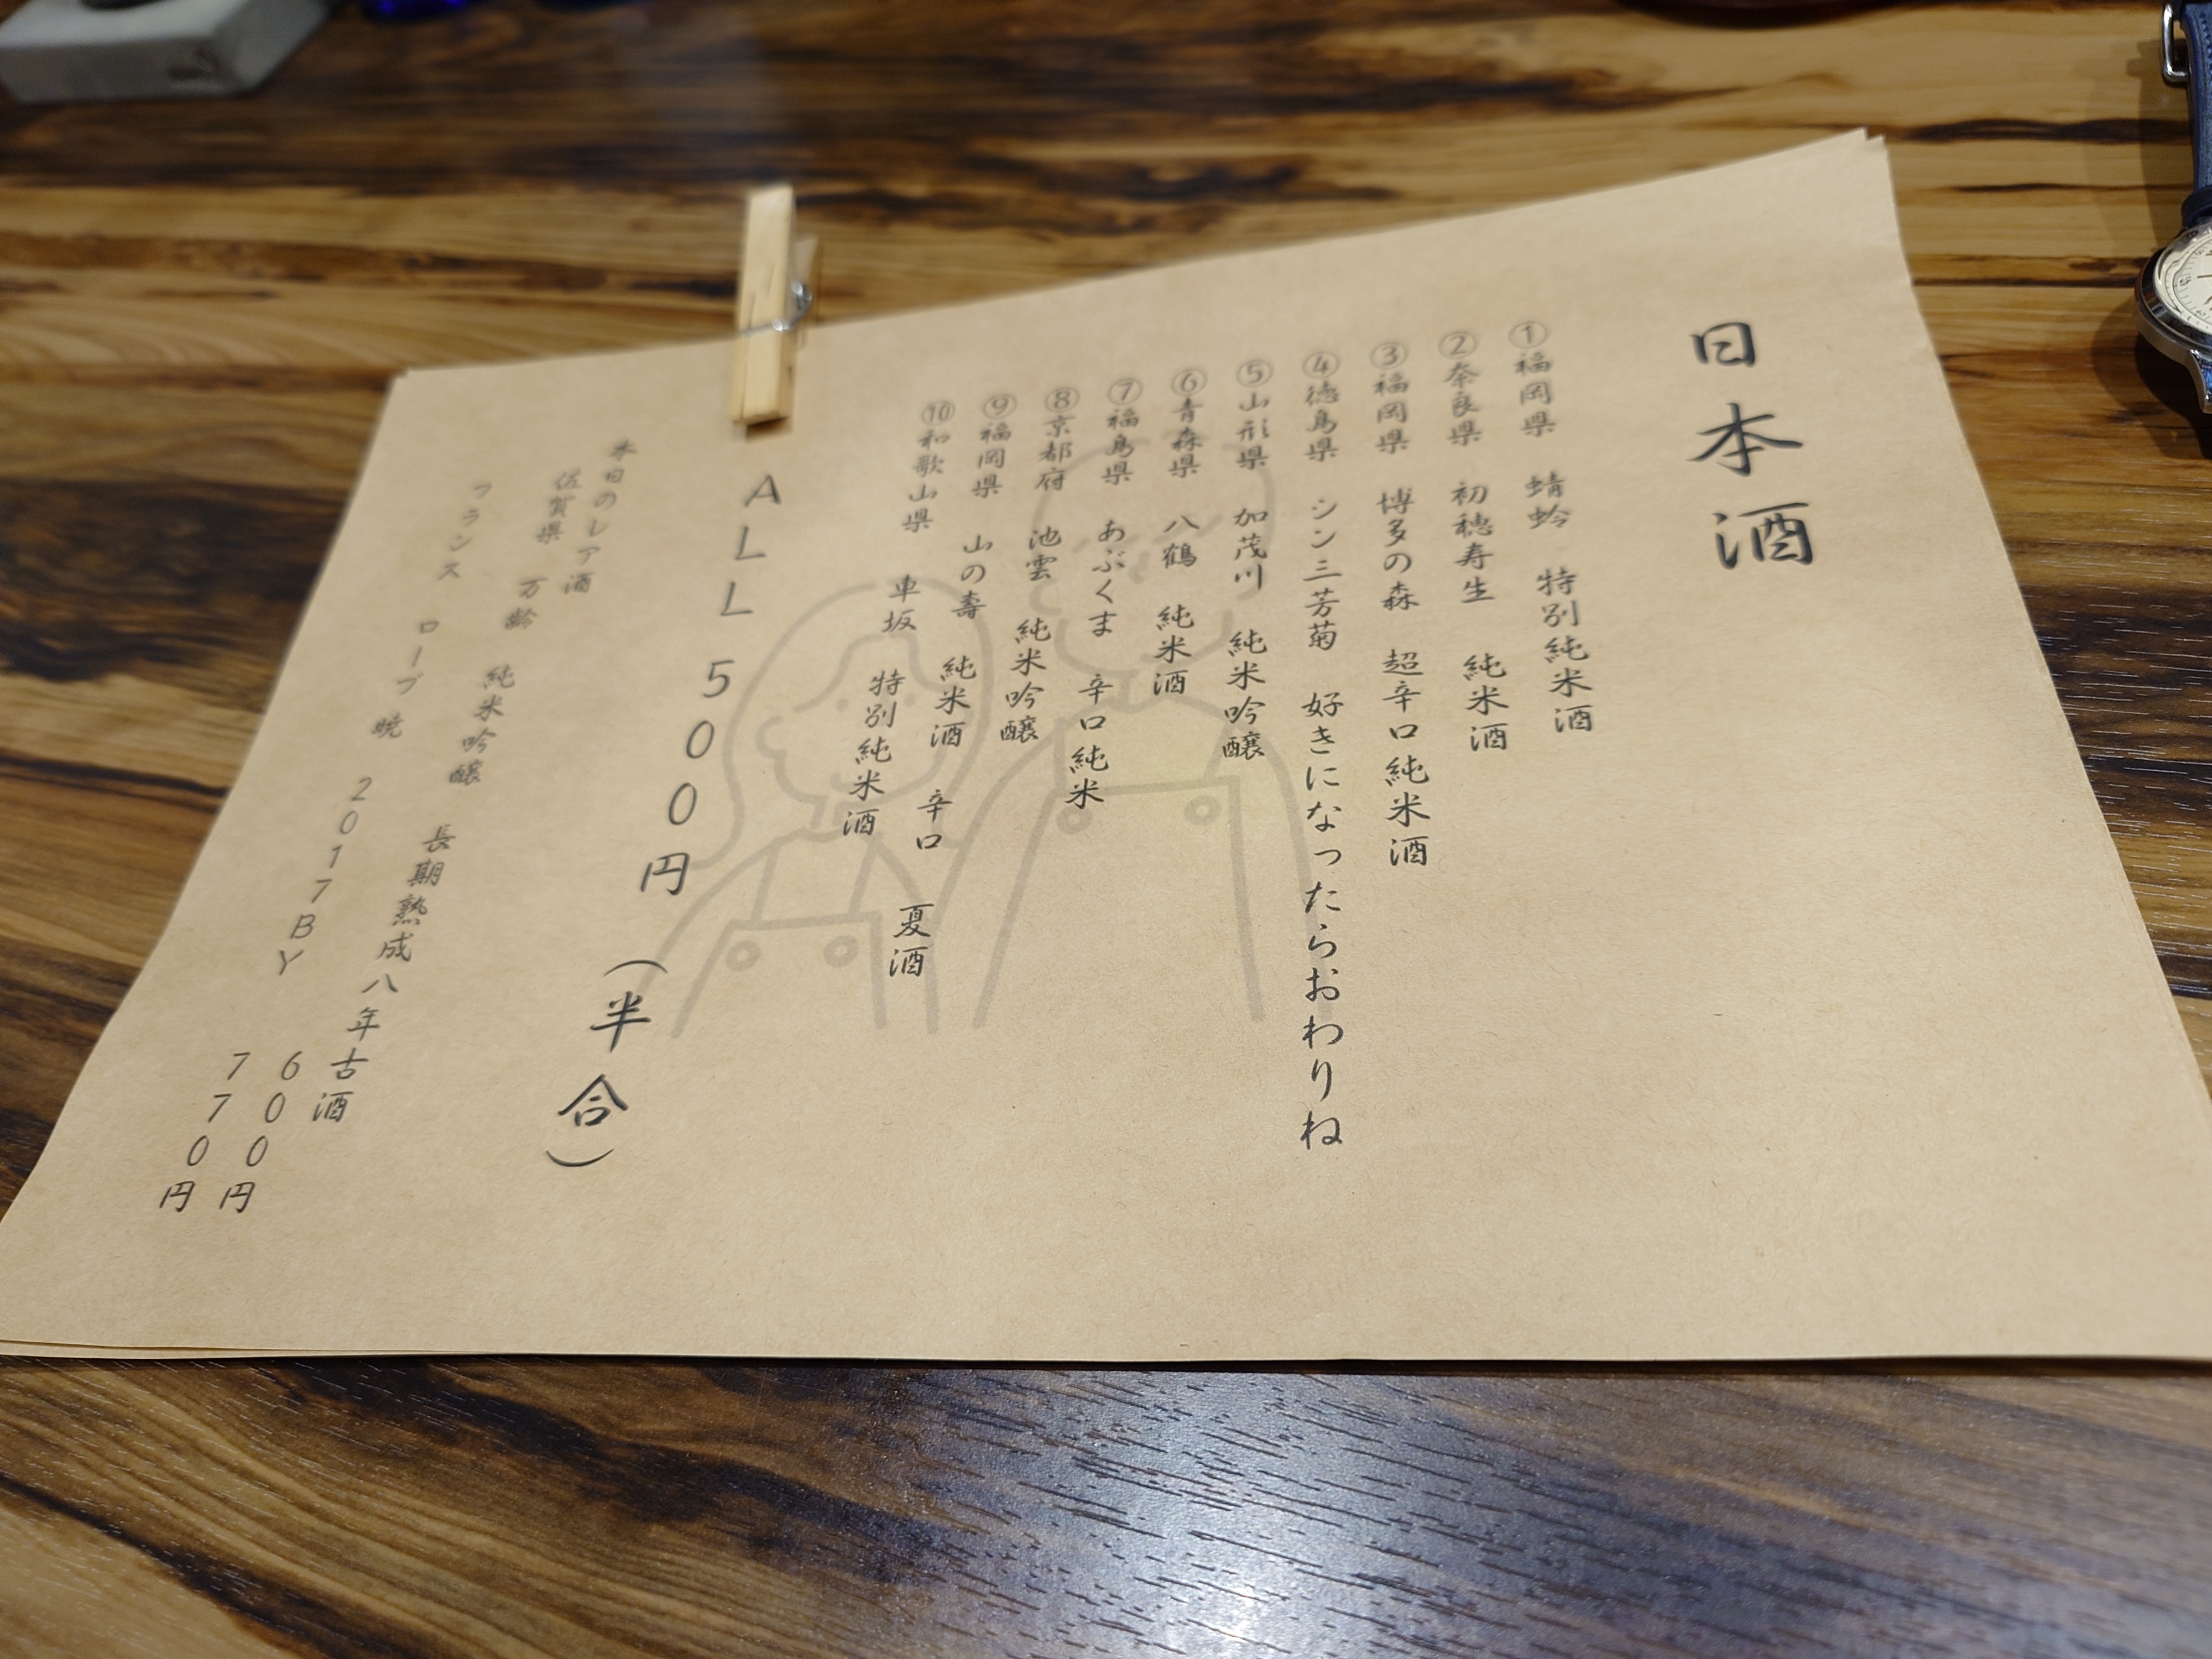 日本酒
①福岡県　蜻蛉　特別純米酒
②奈良県　初穂寿生　純米酒
③福岡県　博多の森　超辛口純米酒
④徳島県　シン三芳菊　好きになったらおわりね
⑤山形県　加茂川　純米吟醸
⑥青森県　八鶴　純米酒
⑦福島県　あぶくま　辛口純米
⑧京都府　池雲　純米吟醸
⑨福岡県　山の壽　純米酒　辛口　夏酒
⑩和歌山県　車坂　特別純米酒
ALL 500円（半合）
本日のレア酒
佐賀県　万齢　純米吟醸　長期熟成八年古酒　600円
フランス　ローブ　暁　2017BY　770円